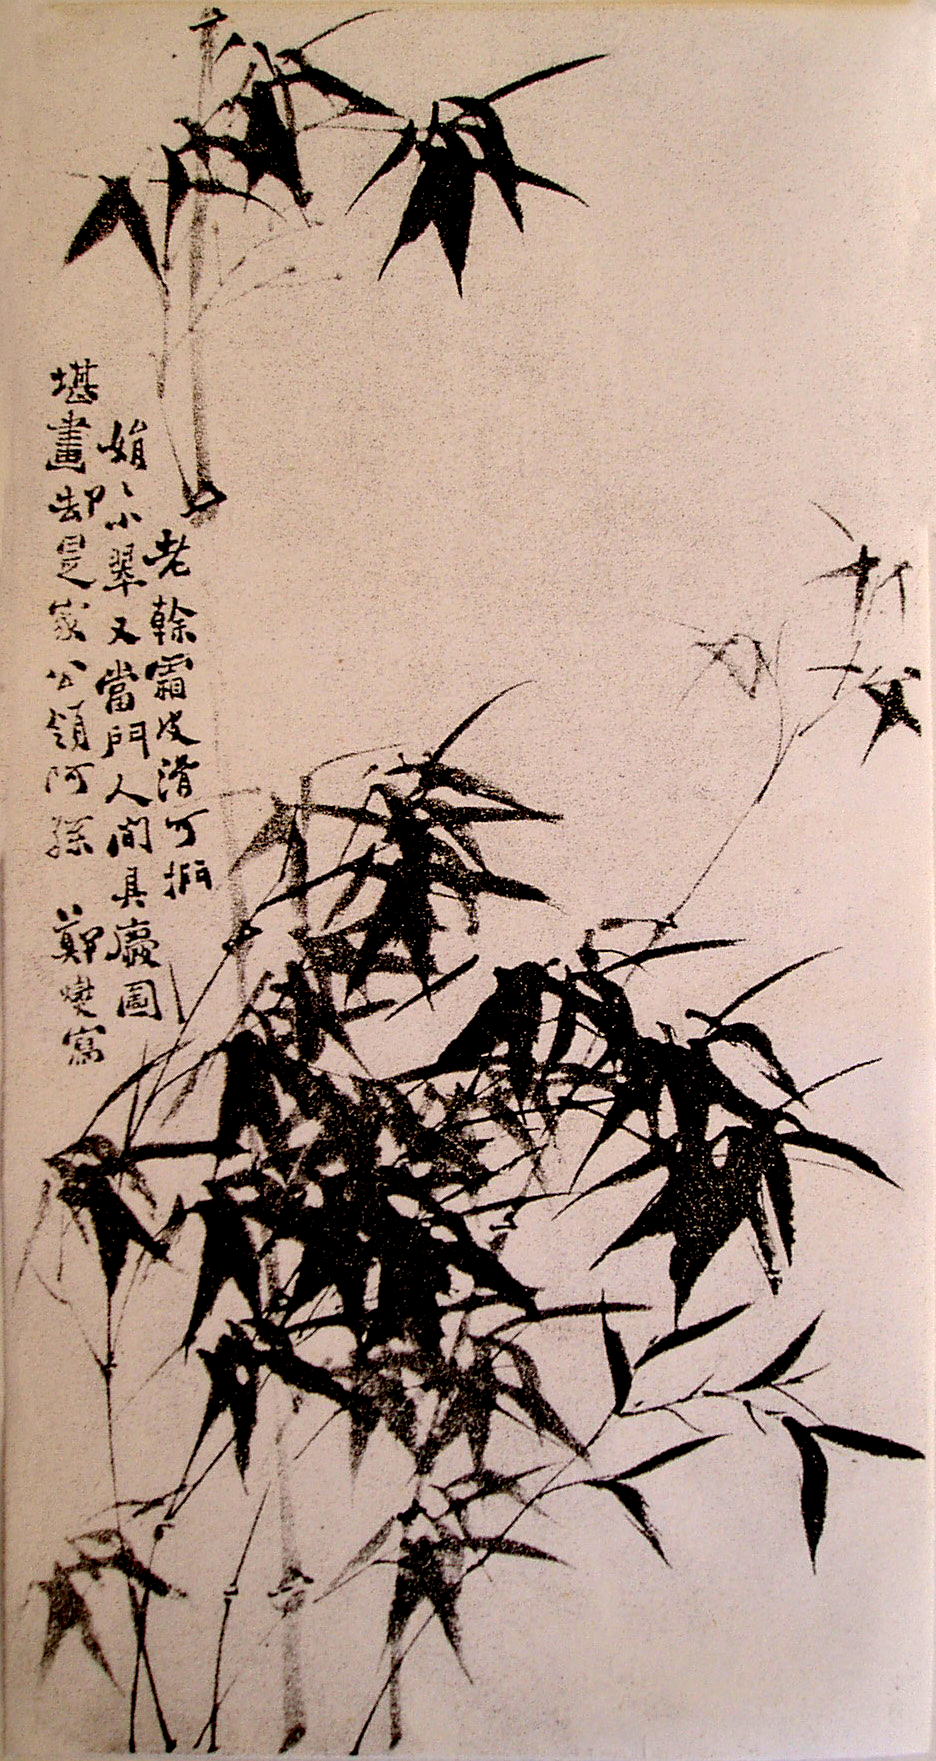 老榦霜皮滑可捫
娟〻小翠又當門人間具慶圖
堪畫却是家公領阿孫 鄭燮寫